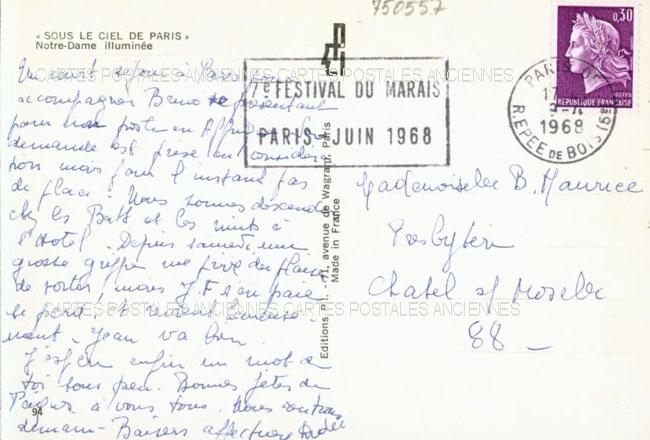 750557
« SOUS LE CIEL DE PARIS »
Notre-Dame illuminée
Un court séjour à Paris pour
accompagner Bruno se présentant
pour un poste en Afrique. Sa
demande est prise en considéra
tion mais pour l'instant pas
de place. Nous sommes descendus
chez les Batt et les nuits à
l'Hotel. Depuis samedi une
grosse grippe me prive du plaisir
de sortir, mais J.F s'en paie
le peu et
nant. Jean va bien.
J'espère enfin un mot de
toi sous peu. Bonnes fêtes de
Pâques à vous tous. Nous rentrons
demain - Baisers affectueux
94
Editions P.I. - 71, avenue de Wagram, Paris
Made in France
7e FESTIVAL DU MARAIS
PARIS - JUIN 1968
0,30
POSTES
REPUBLIQUE FRANÇAISE
PARIS
17
1968
R. EPEE DE BOIS (5e)
Mademoiselle B. Maurice
Presbytère
Chatel s/ Moselle
88 -
CARTES POSTALES ANCIENNES CARTES POSTALES ANCIENNES
CARTES POSTALES ANCIENNES CARTES POSTALES ANCIENNES